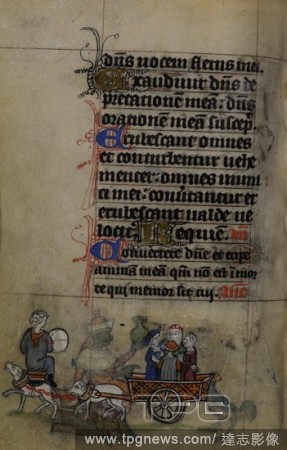 dn̄s uocem fletus mei.
Exaudiuit dn̄s de
precationem meā: dn̄s
orationem meam suscep̄.
Erubescant omnes
et conturbentur uehe
menter: omnes inimi
ci mei: conūtantur et
erubescant ualde ue
lociť. Requiē.
Conuertere dn̄e et eripe
animam meā qm̄ nō ē ī mor
te qui memor sit tui. Añ
TPG
www.tpgnews.com / 達志影像